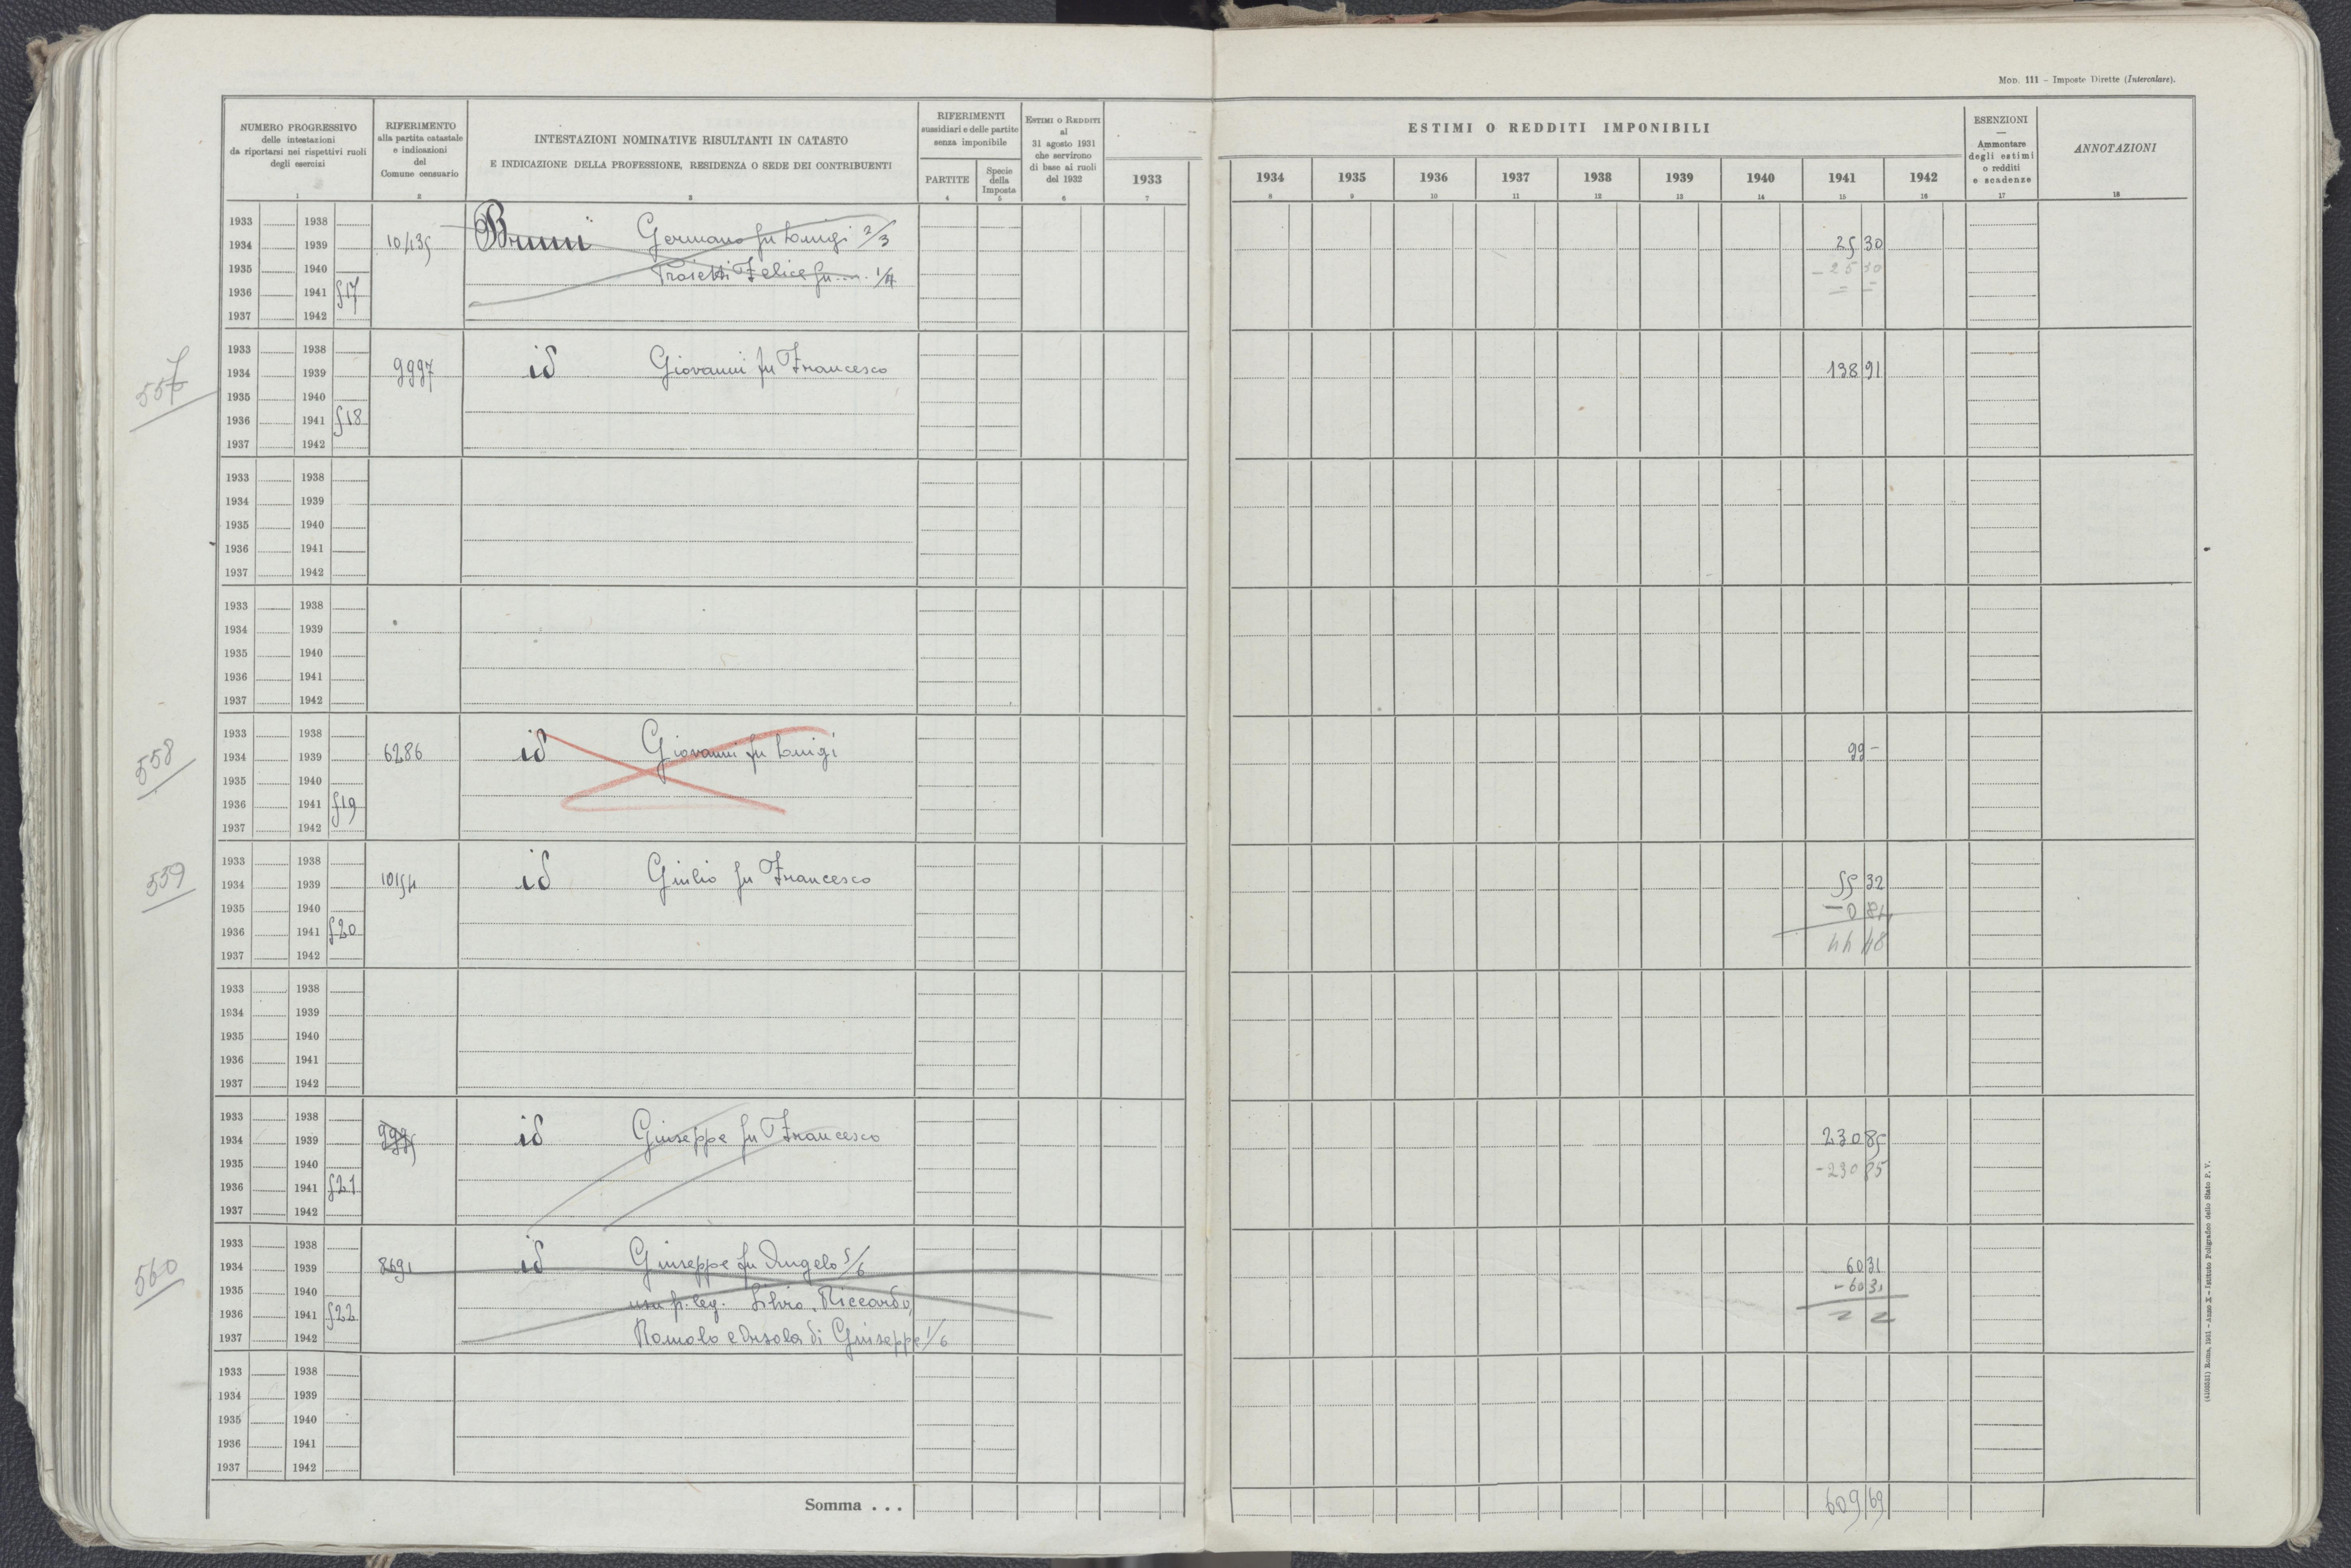 Mod. 111 - Imposte Dirette (Intercalare).
NUMERO PROGRESSIVO
delle intestazioni
da riportarsi nei rispettivi ruoli
degli esercizi
1
RIFERIMENTO
alla partita catastale
e indicazioni
del
Comune censuario
2
INTESTAZIONI NOMINATIVE RISULTANTI IN CATASTO
E INDICAZIONE DELLA PROFESSIONE, RESIDENZA O SEDE DEI CONTRIBUENTI
3
RIFERIMENTI
sussidiari e delle partite
senza imponibile
PARTITE
4
Specie
della
Imposta
5
Estimi o Redditi
al
31 agosto 1931
che servirono
di base ai ruoli
del 1932
6
1933
7
ESTIMI O REDDITI IMPONIBILI
1934 1935 1936 1937 1938 1939 1940 1941 1942
8 9 10 11 12 13 14 15 16
ESENZIONI
—
Ammontare
degli estimi
o redditi
e scadenze
17
ANNOTAZIONI
18
1933 1938
1934 1939 10435 Bruni Germano fu Luigi 2/3 25 30
1935 1940 Proietti Felice fu .... - 25 30
1936 1941 517 = =
1937 1942
557
1933 1938
1934 1939 9997 id Giovanni fu Francesco 138 91
1935 1940
1936 1941 518
1937 1942
1933 1938
1934 1939
1935 1940
1936 1941
1937 1942
1933 1938
1934 1939
1935 1940
1936 1941
1937 1942
558
1933 1938
1934 1939 6286 id Giovanni fu Luigi 99 -
1935 1940
1936 1941 519
1937 1942
559
1933 1938
1934 1939 10154 id Giulio fu Francesco 55 32
1935 1940 - 0 84
1936 1941 520 48
1937 1942
1933 1938
1934 1939
1935 1940
1936 1941
1937 1942
1933 1938
1934 1939 9995 id Giuseppe fu Francesco 230 85
1935 1940 - 230 85
1936 1941 521
1937 1942
560
1933 1938
1934 1939 8691 id Giuseppe fu Angelo 5/6 60 31
1935 1940 - 60 31
1936 1941 522 usu p. leg. Silvio, Riccardo,
1937 1942 Romolo e Orsola di Giuseppe 1/6
1933 1938
1934 1939
1935 1940
1936 1941
1937 1942
Somma . . . 609 69
(4103531) Roma, 1931 - Anno X - Istituto Poligrafico dello Stato P. V.